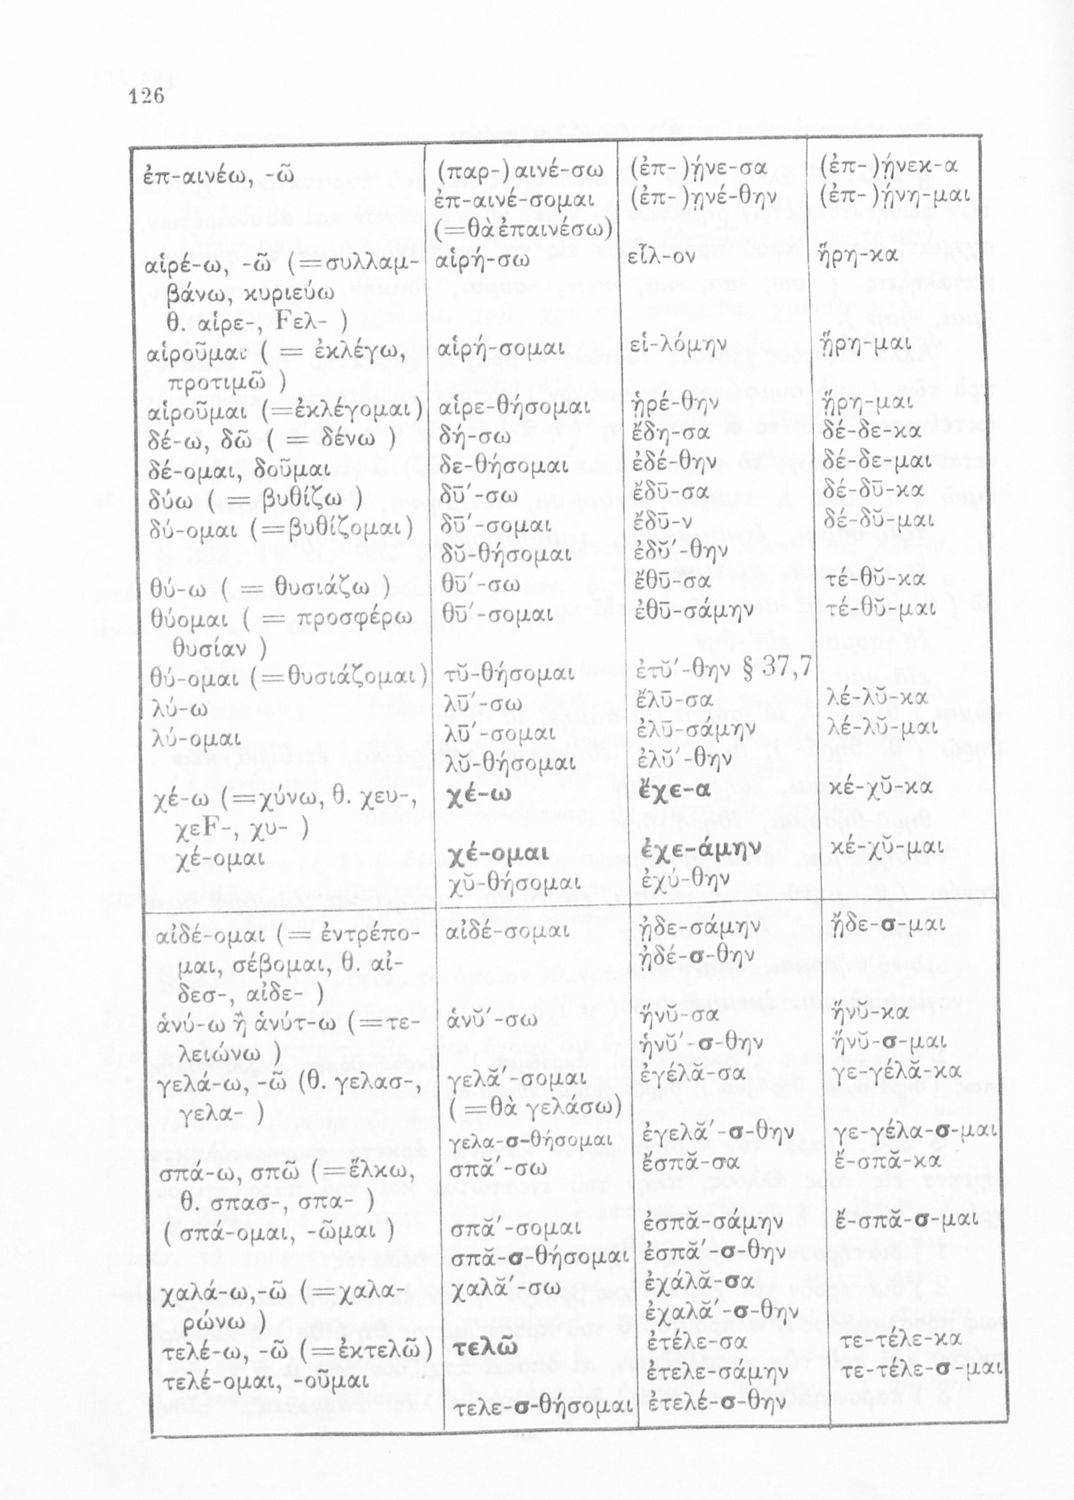 126
ἐπ-αινέω, -ῶ (παρ-) αινέ-σω (ἐπ-)ῄνε-σα (ἐπ-)ῄνεκ-α
ἐπ-αινέ-σομαι (ἐπ-)ῃνέ-θην (ἐπ-)ῄνη-μαι
(=θὰ ἐπαινέσω)
αἱρέ-ω, -ῶ (=συλλαμ- αἱρή-σω εἷλ-ον ᾕρη-κα
βάνω, κυριεύω
θ. αἱρε-, Fελ- )
αἱροῦμαι ( = ἐκλέγω, αἱρή-σομαι εἱ-λόμην ᾕρη-μαι
προτιμῶ )
αἱροῦμαι (=ἐκλέγομαι) αἱρε-θήσομαι ᾑρέ-θην ᾕρη-μαι
δέ-ω, δῶ ( = δένω ) δή-σω ἔδη-σα δέ-δε-κα
δέ-ομαι, δοῦμαι δε-θήσομαι ἐδέ-θην δέ-δε-μαι
δύω ( = βυθίζω ) δῡ́-σω ἔδῡ-σα δέ-δῡ-κα
δύ-ομαι (=βυθίζομαι) δῡ́-σομαι ἔδῡ-ν δέ-δῠ-μαι
δῠ-θήσομαι ἐδῠ́-θην
θύ-ω ( = θυσιάζω ) θῡ́-σω ἔθῡ-σα τέ-θῠ-κα
θύομαι ( = προσφέρω θῡ́-σομαι ἐθῡ-σάμην τέ-θῠ-μαι
θυσίαν )
θύ-ομαι (=θυσιάζομαι) τῠ-θήσομαι ἐτῠ́-θην § 37,7
λύ-ω λῡ́-σω ἔλῡ-σα λέ-λῠ-κα
λύ-ομαι λῡ́-σομαι ἐλῡ-σάμην λέ-λῠ-μαι
λῠ-θήσομαι ἐλῠ́-θην
χέ-ω (=χύνω, θ. χευ-, χέ-ω ἔχε-α κέ-χῠ-κα
χεF-, χυ- )
χέ-ομαι χέ-ομαι ἐχε-άμην κέ-χῠ-μαι
χῠ-θήσομαι ἐχύ-θην
αἰδέ-ομαι (= ἐντρέπο- αἰδέ-σομαι ᾐδε-σάμην ᾔδε-σ-μαι
μαι, σέβομαι, θ. αἰ- ᾐδέ-σ-θην
δεσ-, αἰδε- )
ἀνύ-ω ἢ ἀνύτ-ω (=τε- ἀνῠ́-σω ἤνῠ-σα ἤνῠ-κα
λειώνω ) ἠνῠ́-σ-θην ἤνῠ-σ-μαι
γελά-ω, -ῶ (θ. γελασ-, γελᾰ́-σομαι ἐγέλᾰ-σα γε-γέλᾰ-κα
γελα- ) ( =θὰ γελάσω)
γελα-σ-θήσομαι ἐγελᾰ́-σ-θην γε-γέλα-σ-μαι
σπά-ω, σπῶ (=ἕλκω, σπᾰ́-σω ἔσπᾰ-σα ἔ-σπᾰ-κα
θ. σπασ-, σπα- )
( σπά-ομαι, -ῶμαι ) σπᾰ́-σομαι ἐσπᾰ-σάμην ἔ-σπᾰ-σ-μαι
σπᾰ-σ-θήσομαι ἐσπᾰ́-σ-θην
χαλά-ω,-ῶ (=χαλα- χαλᾰ́-σω ἐχάλᾰ-σα
ρώνω ) ἐχαλᾰ́-σ-θην
τελέ-ω, -ῶ (=ἐκτελῶ) τελῶ ἐτέλε-σα τε-τέλε-κα
τελέ-ομαι, -οῦμαι ἐτελε-σάμην τε-τέλε-σ-μαι
τελε-σ-θήσομαι ἐτελέ-σ-θην